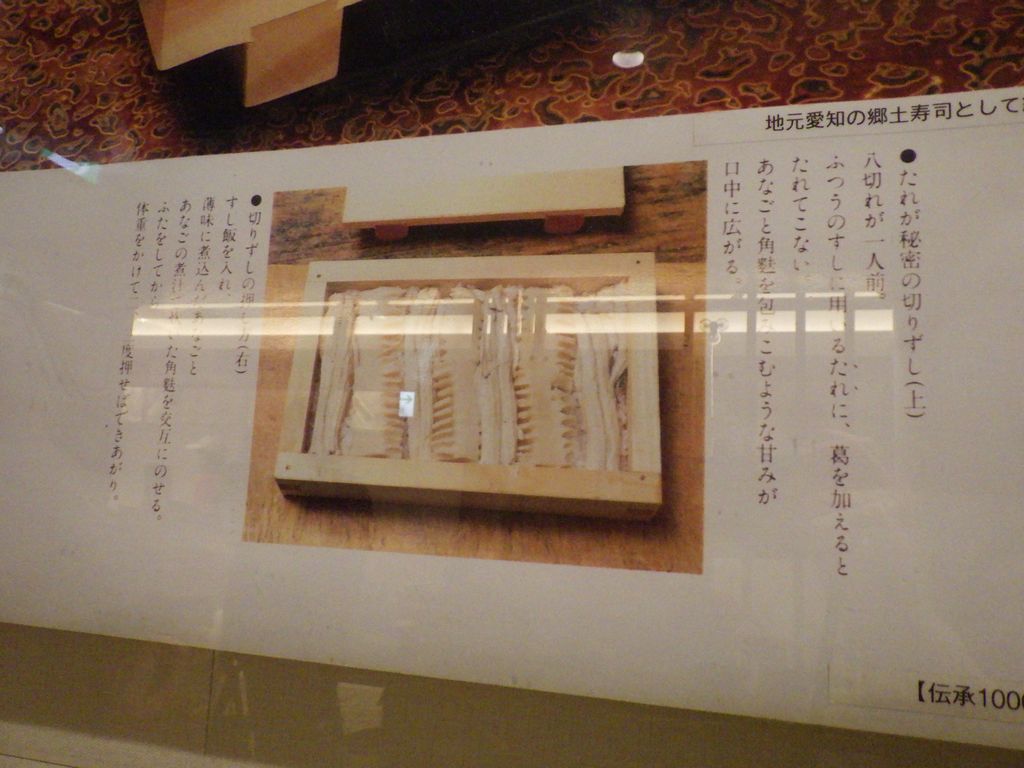 地元愛知の郷土寿司として
●たれが秘密の切りずし(上)
八切れが一人前。
ふつうのすしに用いるたれに、葛を加えると
たれてこない。
あなごと角麩を包みこむような甘みが
口中に広がる。
●切りずしの押し方(右)
すし飯を入れ、
薄味に煮込んだあなごと
あなごの煮汁で た角麩を交互にのせる。
ふたをしてから
体重をかけて 度押せばできあがり。
【伝承100